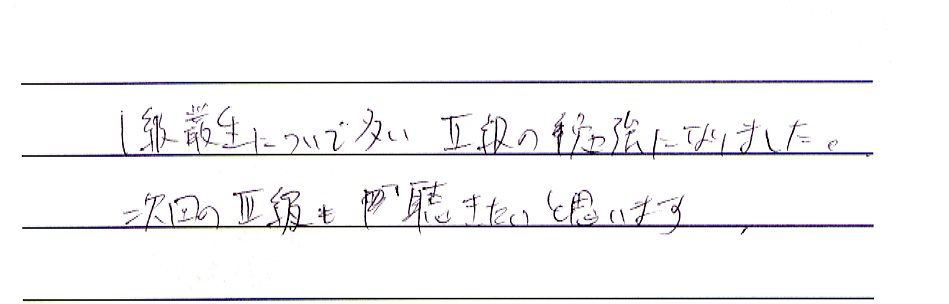 1級叢生について多い II級の勉強になりました。
次回のII級も聴きたいと思います